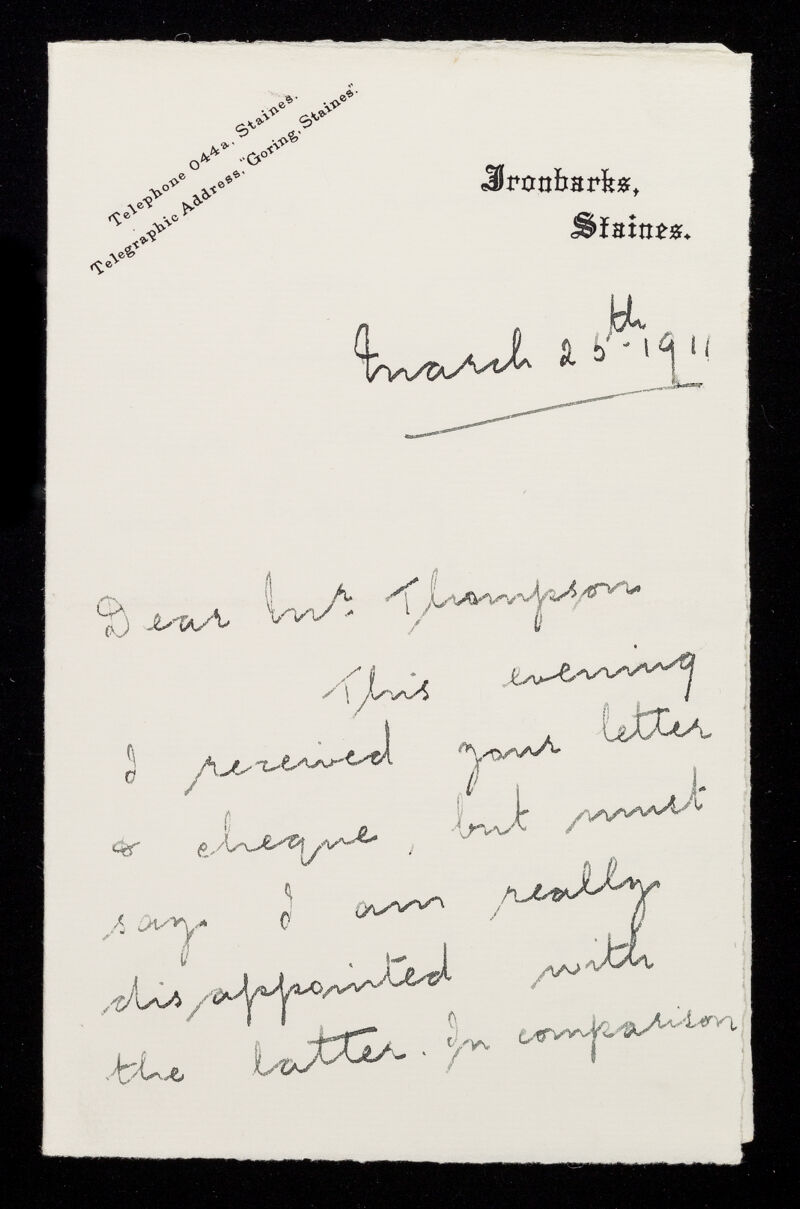 Telephone 044a, Staines.
Telegraphic Address, "Goring, Staines".
Ironbarks,
Staines.
March 25th. 1911
Dear Mr. Thompson
This evening
I received your letter
& cheque, but must
say I am really
disappointed with
the latter. In comparison